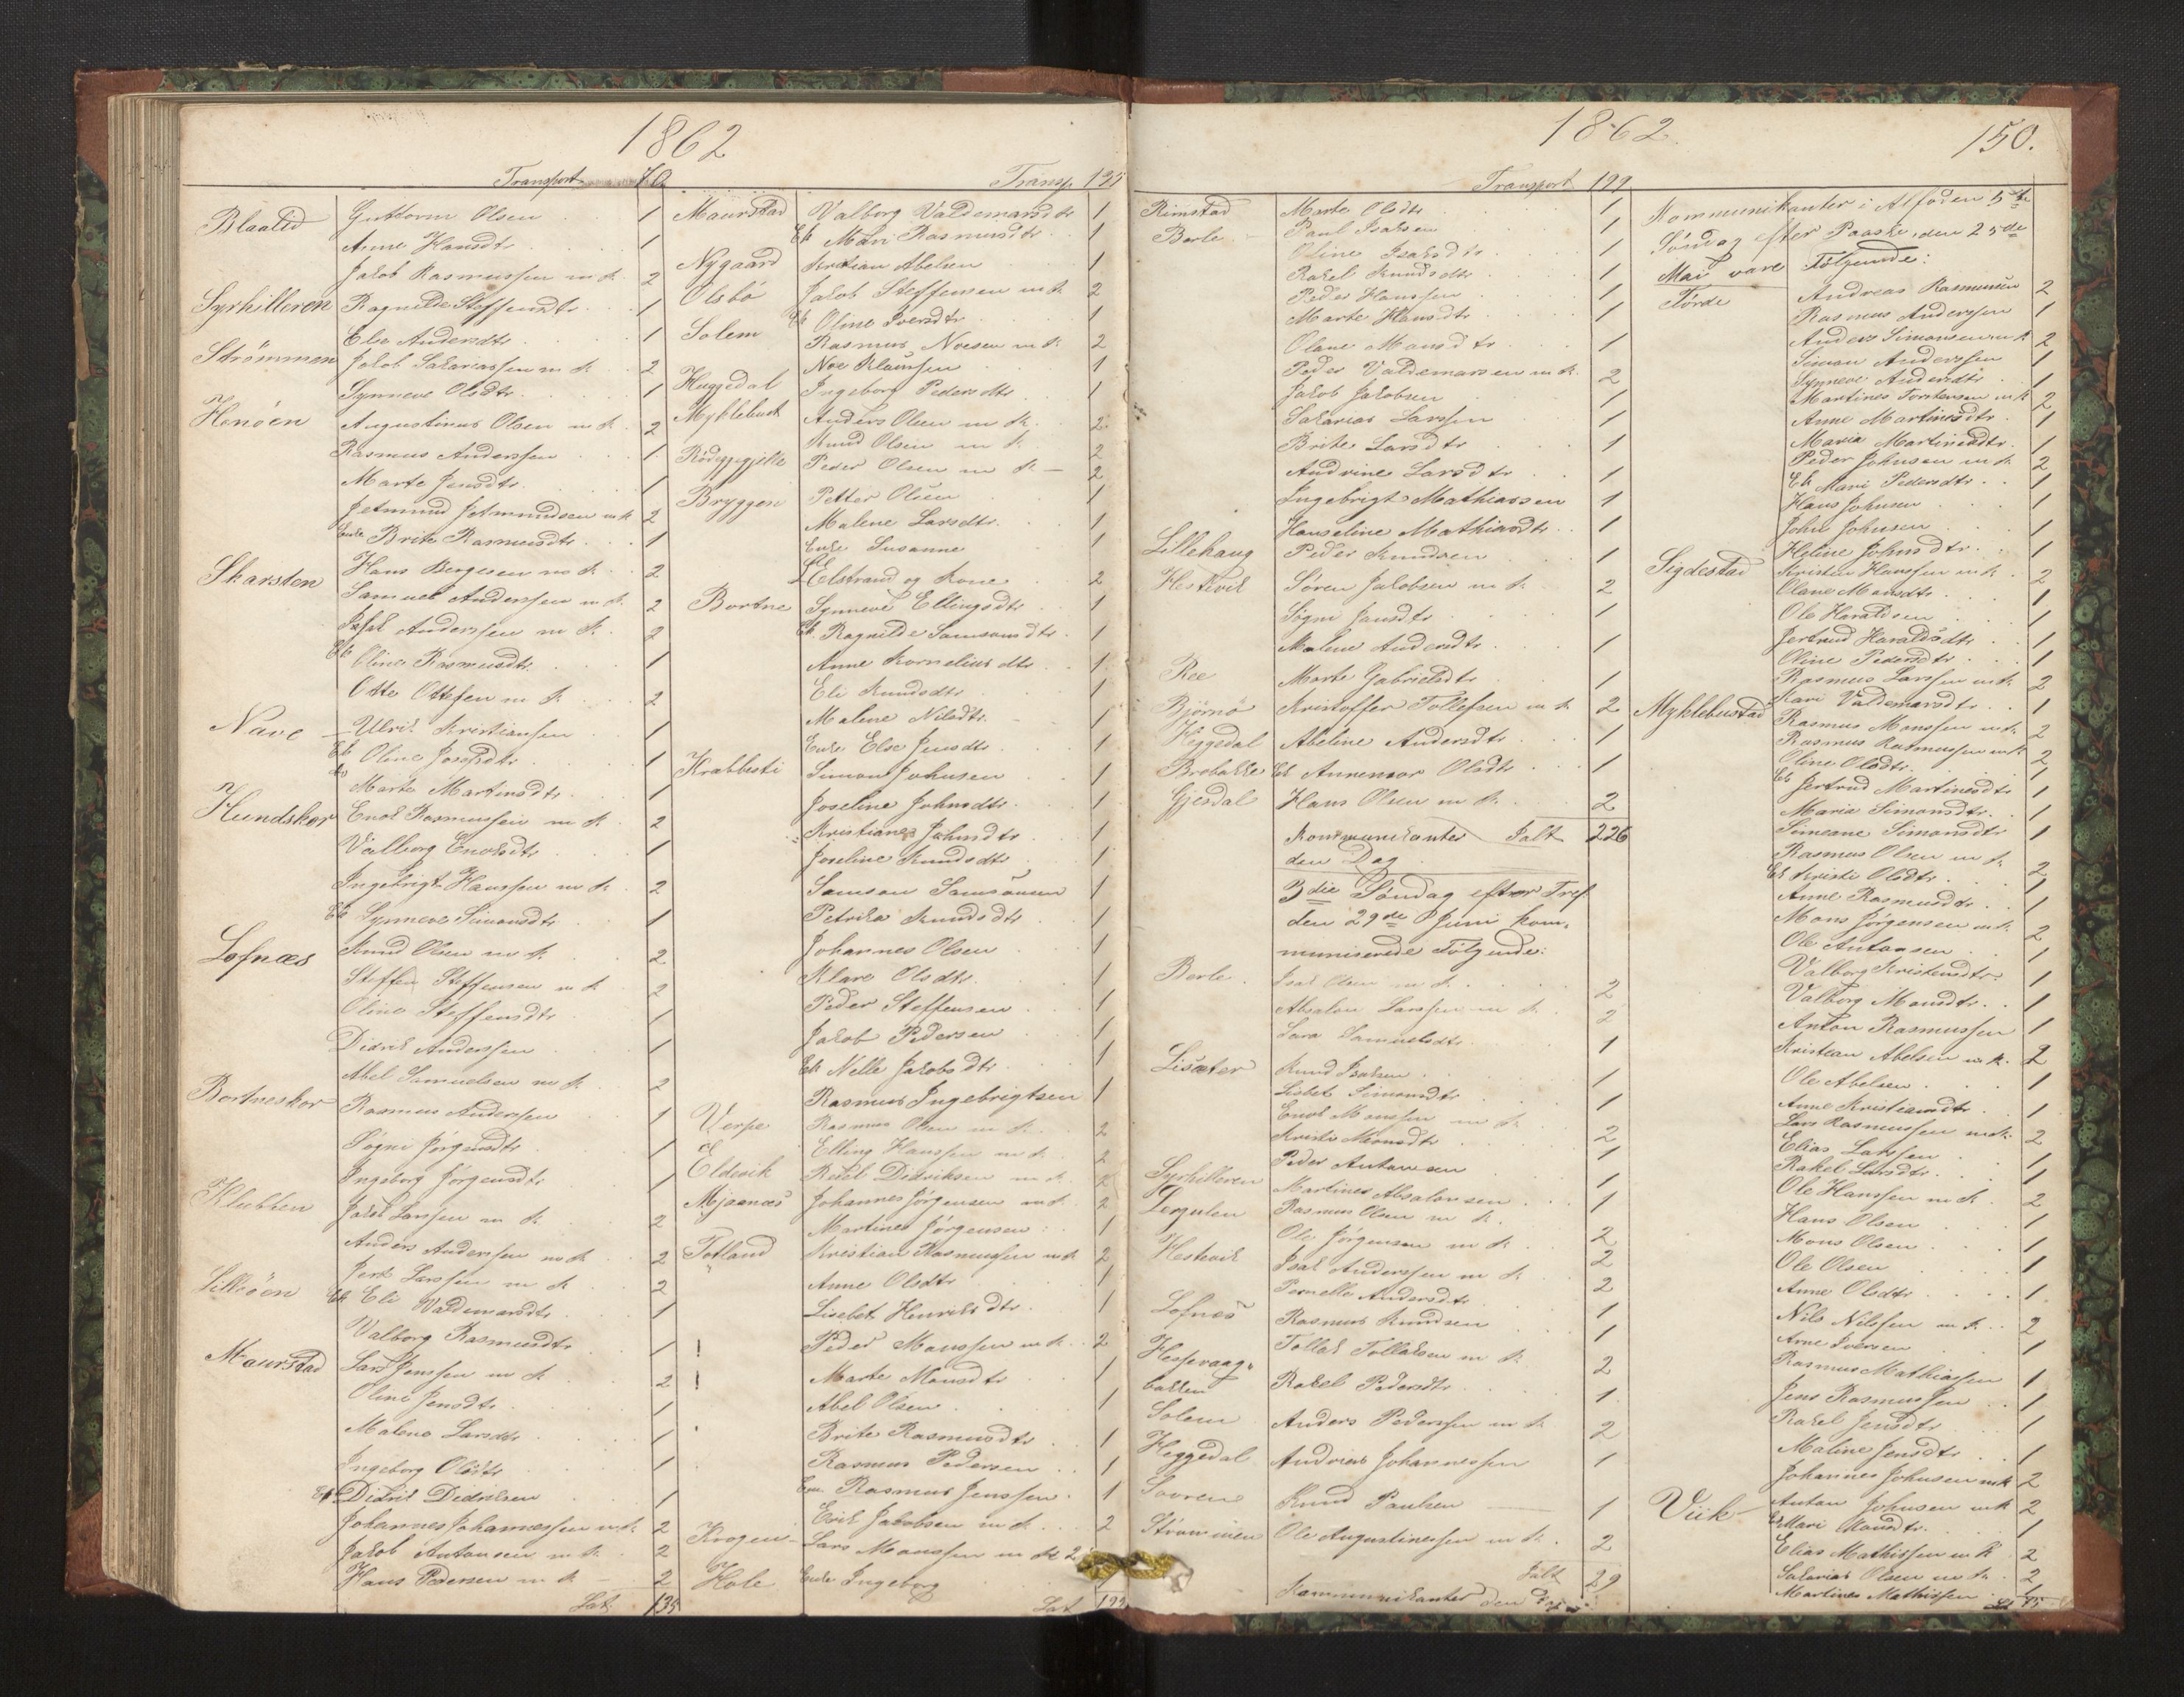 1862
Transport 70
Blaalid Guttorm Olsen 1
Anne Hansdtr 1
Jakob Rasmussen m K. 2
Syrhilleren Ragnilde Steffensdtr 1
Else Andersdtr 1
Strømmen Jakob Sakariassen m K. 2
Synneve Olsdtr. 1
Henøen Augustinus Olsen m K. 2
Rasmus Anderssen 1
Marte Jensdtr. 1
Jetmund Jetmundsen m K 2
Enke Brite Rasmusdtr. 1
Skarsten Hans Bergesen m K. 2
Samuel Anderssen m K. 2
Anderssen m K. 2
Ek Oline Rasmusdtr. 1
Otte Ottesen m K. 2
Nave Ulrik Kristiansen 1
Ek Oline Josefsdtr 1
do Marte Martinsdtr. 1
Hundskor Enok Rasmussen m K. 2
Valborg Enoksdtr 1
Ingebrigt Hanssen m K. 2
Ek Synneve Simonsdtr 1
Lofnæs Knud Olsen m K. 2
Steffen Steffensen m K 2
Oline Steffensdtr 1
Didrik Anderssen 1
Abel Samuelsen m K. 2
Bortneskor Rasmus Anderssen 1
Søgni Jørgensdtr 1
Ingeborg Jørgensdtr 1
Klubben Jakob Larssen m K. 2
Anders Anderssen m K. 2
Larssen m K 2
Silliøen Ek Eli Valdemarsdtr. 1
Valborg Rasmusdtr 1
Maurstad Lars Jenssen m K. 2
Oline Jensdtr. 1
Malene Larsdtr. 1
Ingeborg Olsdtr 1
Ek Didrik Didriksen 1
Johannes Johannessen m K. 2
Jakob Antonsen m K. 2
Hans Pedersen m K 2
Lat. 135
Transp. 135
Maurstad Valborg Valdemarsdtr 1
Ek Mari Rasmusdtr. 1
Nygaard Kristian Abelsen 1
Olsbø Jakob Steffensen m K. 2
Ek Oline Iversdtr. 1
Solem Rasmus Noesen m K. 2
Noe Klaussen 1
Heggedal Ingeborg Pedersdtr 1
Myklebust Anders Olsen m K. 2
Knud Olsen m K. 2
Peder Olsen m K 2
Bryggen Petter Olsen 1
Malene Larsdtr. 1
Enke Susanne 1
Elstrand og Kone 2
Bortne Synneve Ellingsdtr 1
Ek. Ragnilde Samsonsdtr. 1
Anne Korneliusdtr 1
Eli Knudsdtr 1
Malene Nilsdtr. 1
Enke Else Jensdtr. 1
Krabbesti Simon Johnsen 1
Joseline Johnsdtr. 1
Kristiane Johnsdtr 1
Joseline Knudsdtr 1
Samson Samsonsen 1
Petrika Knudsdtr 1
Johannes Olsen 1
Klare Olsdtr. 1
Peder Steffensen 1
Jakob Pedersen 1
Ek Nelle Jakobsdtr 1
Rasmus Ingebrigtsen 1
Verpe Rasmus Olsen m K. 2
Elling Hanssen m K. 2
Eldevik Didriksen m K. 2
Mjaanæs Johannes Jørgensen m K 2
Martines Jørgensen 1
Totland Kristian Rasmussen m K 2
Anne Olsdtr. 1
Lisebet Henriksdtr. 1
! Peder Monssen m K. 2
! Marte Monsdtr 1
Abel Olsen 1
Brite Rasmusdtr 1
Rasmus Pedersen 1
Rasmus Jenssen 1
Erik Jakobsen m K. 2
Krogen Lars Monssen m K 2
Hole Enke Ingeborg
Lat 199
1862.
150.
Transport 199
Rimstad Marte Olsdtr 1
Berle Paul Isaksen 1
Oline Isaksdtr 1
Rakel Knudsdtr 1
Peder Hanssen 1
Marte Hansdtr 1
Olane Monsdtr 1
Peder Valdemarsen m K. 2
Jakob Jakobsen 1
Sakarias Larssen 1
Brite Larsdtr 1
Andrine Larsdtr 1
Ingebrigt Mathiassen 1
Hanseline Mathiasdtr 1
Lillehaug Peder Knudsen 1
Hestevik Søren Jakobsen m K. 2
Søgni Jansdtr 1
Malene Andersdtr 1
Ree Marte Gabrielsdtr 1
Bjørnø Kristoffer Tollefsen m K 2
Heggedal Abeline Andersdtr 1
Brobakke Ek Annemor Olsdtr 1
Gjesdal Hans Olsen m K. 2
Kommunikanter Ialt 226
den Dag
3die Søndag efter Tref.
den 29de Juni kom-
muniserede Følgende:
Berle. Isak Olsen m K. 2
Absalon Larssen m K. 2
Sara Samuelsdtr. 1
Lisæter Knud Isaksen 1
Lisbet Simonsdtr 1
Enok Monssen m K. 2
Kristi Monsdtr 1
Syrhilleren Peder Antonsen 1
Martines Absalonsen 1
Rasmus Olsen m K. 2
Ole Jørgensen m K. 2
Hestevik Isak Anderssen m K. 2
Pernelle Andersdtr 1
Lofnæs Rasmus Knudsen 1
Tollak Tollaksen m K. 2
bakken Rakel Pedersdtr 1
Solem Anders Pederssen m K 2
Heggedal Andreas Johannessen 1
Knud Paulsen 1
Strømmen Ole Augustinussen m K. 2
Ialt 29
Kommunikanter den Dag
Kommunikanter i Alfoden 5te
Søndag efter Paaske, den 25de
Mai vare Følgende:
Førde Andreas Rasmussen 2
Rasmus Anderssen 1
Anders Simonsen m K 2
Simon Anderssen 1
Synneve Andersdtr 1
Martines Torstensen m K 2
Anne Martinesdtr. 1
Maria Martinesdtr. 1
Peder Johnsen m K. 2
Ek Mari Pedersdtr. 1
Hans Johnsen 1
John Johnsen 1
Heline Johnsdtr. 1
Sigdestad Kristen Hanssen m K. 2
Olane Monsdtr. 1
Ole Haraldsen 1
Jertrud Haraldsdtr 1
Oline Pedersdtr. 1
Rasmus Larssen m K. 2
Kari Valdemarsdtr. 1
Myklebustad Rasmus Monssen m K. 2
Rasmus Rasmussen m K 2
Oline Olsdtr. 1
Ek Jertrud Martinesdtr 1
Maria Simonsdtr. 1
Simeane Simonsdtr 1
Rasmus Olsen m K 2
Ek Kristi Olsdtr. 1
Anne Rasmusdtr. 1
Mons Jørgensen m K. 2
Ole Antonsen 1
Valborg Kristensdtr. 1
Valborg Monsdtr. 1
Anton Rasmussen 1
Kristian Abelsen m K. 2
Ole Abelsen 1
Anne Kristiansdtr. 1
Lars Rasmussen m K. 2
Elias Larssen 1
Rakel Larsdtr. 1
Ole Hanssen m K. 2
Hans Olsen 1
Mons Olsen 1
Ole Olsen 1
Anne Olsdtr 1
Nils Nilssen m K. 2
Arne Iversen 1
Rasmus Mathiassen 1
Jens Rasmussen 1
Rakel Jensdtr. 1
Maline Jensdtr. 1
Johannes Johnsen m K 2
Viik Anton Johnsen m K 2
Ek Mari Monsdtr. 1
Elias Mathissen m K 2
Sakarias Olsen m K. 2
Martines Mathissen 1